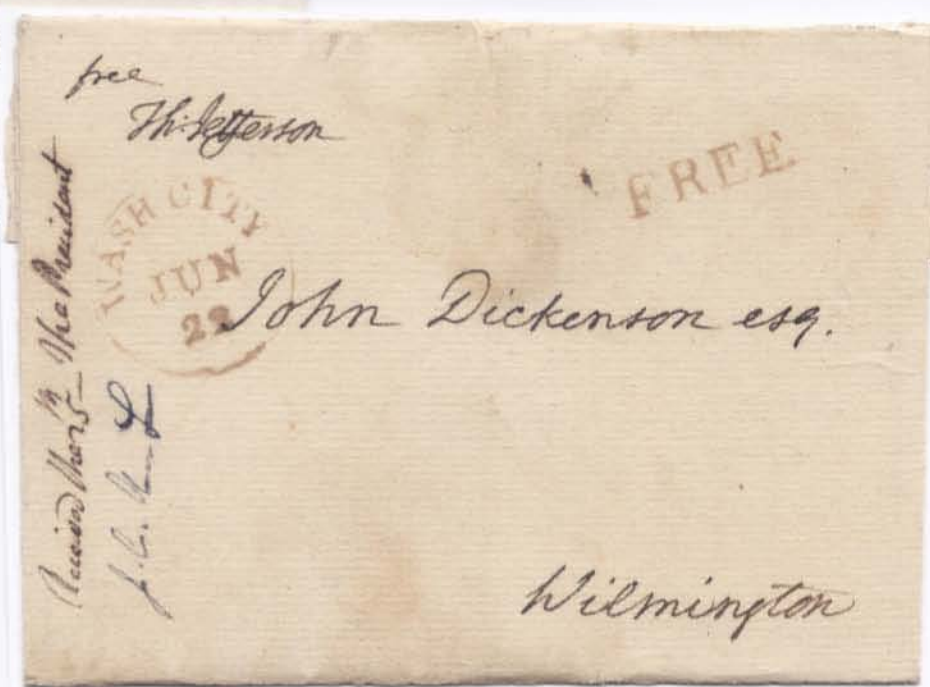 free
Th: Jefferson
FREE
WASH CITY
JUN
22
John Dickenson esq.
Wilmington
the 5th The President